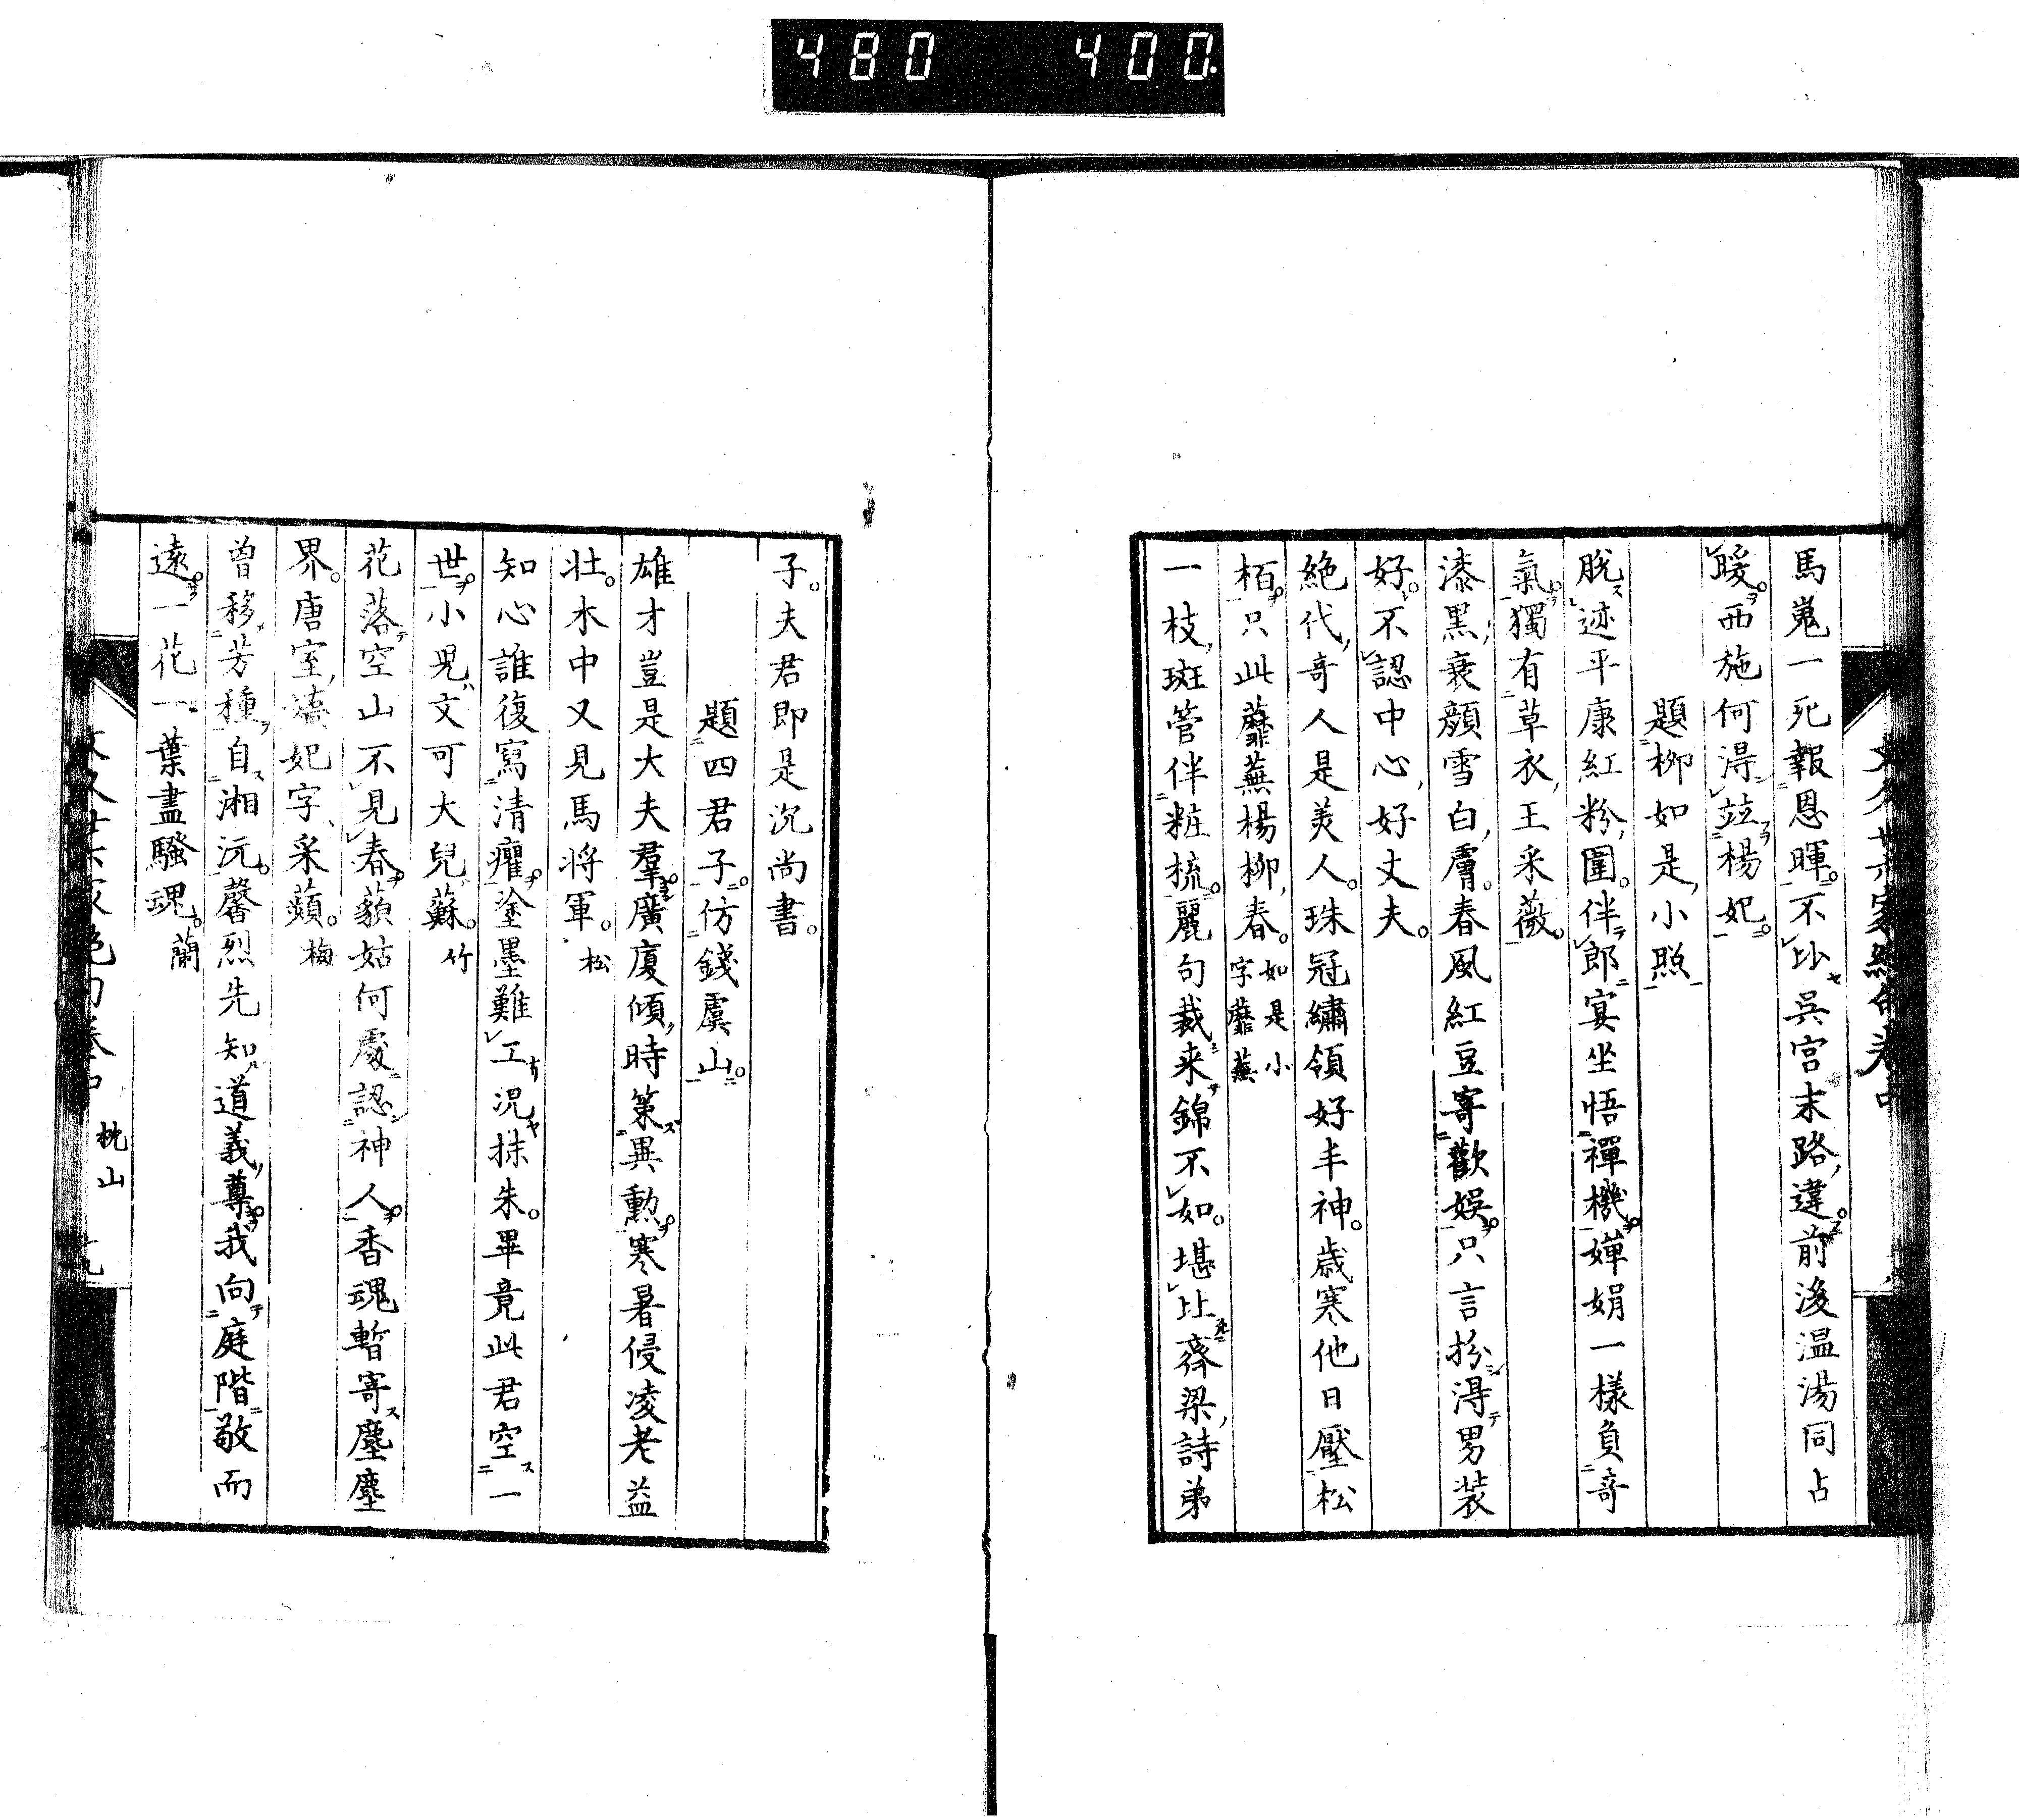 480 400
馬嵬一死報恩暉。不比吳宮末路違。前後温湯同占
暖。西施何得竝楊妃。
題柳如是小照
脱迹平康紅粉圍。伴郎宴坐悟禪機。嬋娟一樣負奇
氣。獨有草衣王采薇。
漆黒衰顔雪白膚。春風紅豆寄歡娯。只言扮得男装
好。不認中心好丈夫。
絶代奇人是美人。珠冠繡領好丰神。歳寒他日壓松
栢。只此蘼蕪楊柳春。如是小字蘼蕪
一枝斑管伴粧梳。麗句裁来錦不如。堪比齊梁詩弟
子。夫君即是沉尚書。
題四君子。仿錢虞山。
雄才豈是大夫羣。廣廈傾時策異勲。寒暑侵凌老益
壮。木中又見馬将軍。松
知心誰復寫清癯。塗墨難工况抹朱。畢竟此君空一
世。小児文可大兒蘇。竹
花落空山不見春。藐姑何處認神人。香魂暫寄塵塵
界。唐室嬉妃字采蘋。梅
曽移芳種自湘沅。馨烈先知道義尊。我向庭階敬而
遠。一花一葉盡騷魂。蘭
枕山